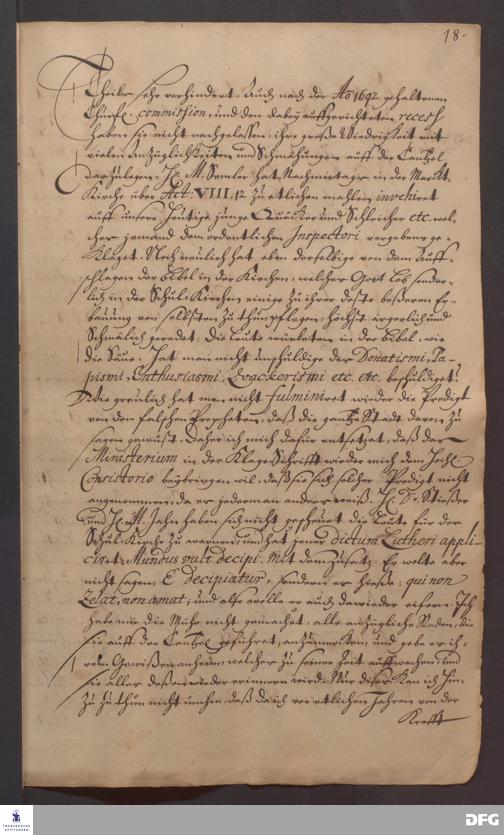 18.
Theils sehr verhindert. Auch nach der Ao 1692 gehaltenen
Churfl. commission, und den dabey auffgerichteten recess
haben sie nicht nachgelassen, ihre große Wiedrigkeit mit
vielen Anzüglichkeiten und Schmähungen auff der Cantzel
darzulegen. H. M. Semler hat Nachmittage in der Marckt
Kirche über Act: VIII, 12 zu etlichen mahlen invehiret
auff unsere heutige junge Quäcker und Schleicher etc. wel-
cher jemand dem ordentlichen Inspectori vergebens ge-
klaget. Noch neulich hat eben derselbige von dem Auff-
schlagen der Bibel in der Kirchen, welches Gott lob sonder-
lich in der Schul-Kirchen einige zu ihrer desto besseren Er-
bauung von selbsten zu thun pflegen, höchst ärgerlich und
Schmälich geredet, Die Leute wühleten in der Bibel, wie
die Säue. Hat man nicht Unschuldige der Donatismi, Pa-
pismi, Enthusiasmi, Qvackerismi etc. etc. beschuldiget?
Wie greulich hat man nicht fulminiret wieder die Predigt
von den falschen Propheten, daß die gantze Stadt davon zu
sagen gewust. Daher ich mich dafür entsetzet, daß das
Ministerium in der Klage Schrifft wieder mich dem Hochl.
Consistorio beybringen wil, daß sie sich solcher Predigt nicht
angenommen, da es jederman anders weiß. H. Dr. Stisser
und H. M. Jahn haben sich nicht gescheuet die Leute für der
Schul-Kirche zu warnen, und hat jener dictum Lutheri appli-
ciret: Mundus vult decipi. Mit dem Zusatz: Er wolte aber
nicht sagen: E decipiatur, sondern es hiesse: qui non
Zelat, non amat; und also wolle er auch dawieder eifern. Ich
habe mir die Mühe nicht gemachet, alle anzügliche Reden, die
sie auff der Cantzel geführet, anzumercken, und gebe es ih-
rem Gewißen anheim, welches zu seiner Zeit auffwachen, und
sie alles dessen wieder erinnern wird. Nur dieses kan ich hin-
zu zu thun nicht umhin, daß da ich vor etlichen Jahren von der
Krafft
FRANCKESCHE STIFTUNGEN
DFG